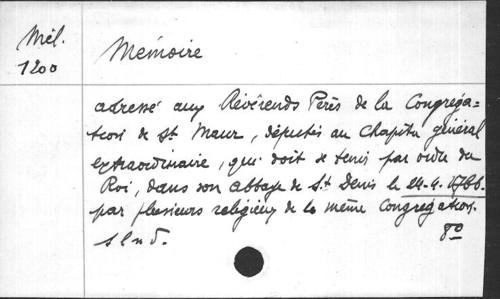 Mél.
1200
Mémoire
adressé aux Révérends Pères de la Congréga=
tion de St Maur, députés au Chapitre général
extraordinaire, qui doit se tenir par ordre du
Roi, dans son abbaye de St Denis le 24.4.1766.
par plusieurs religieux de la même Congrégation.
s l n d.
8º